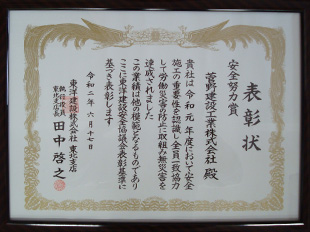 表彰状
安全努力賞
菅野建設工業株式会社 殿
貴社は令和元年度において安全
施工の重要性を認識し全員一致協力
して労働災害の防止に取組み無災害を
達成されました
この業績は他の模範となるものであり
ここに東洋建設安全協議会表彰基準に
基づき表彰します
令和二年 六月 十七日
東洋建設株式会社 東北支店
執行役員
東北支店長 田中 啓之